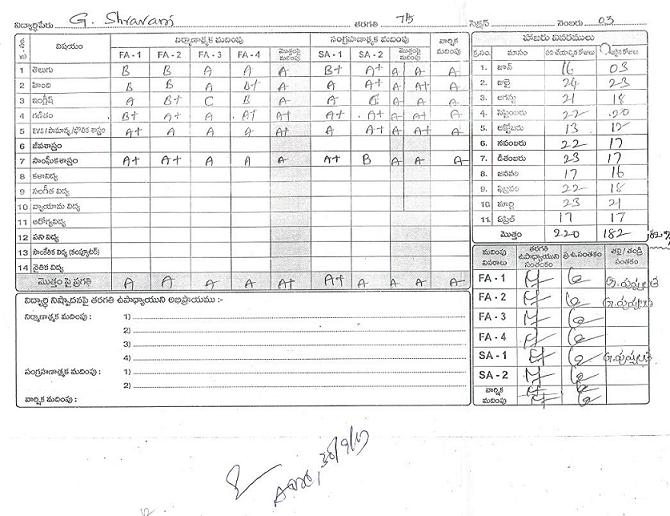 విద్యార్థిపేరు G. Shravani తరగతి 7th సెక్షన్ నెంబరు 03
విషయం నిర్మాణాత్మక మదింపు సంగ్రహణాత్మక మదింపు వార్షిక మదింపు
FA - 1 FA - 2 FA - 3 FA - 4 మొత్తంపై మదింపు SA - 1 SA - 2 మొత్తంపై మదింపు
1 తెలుగు B B A A A- B+ A+ A A- A-
2 హింది B B A B+ A- A A+ A- A+ A-
3 ఇంగ్లీష్ A B+ C B A- A A- A- A-
4 గణితం B+ A+ A A+ A+ A+ A+ A A+ A-
5 EVS / సామాన్య / భౌతిక శాస్త్రం A+ A A A A+ A A+ A A+ A-
6 జీవశాస్త్రం
7 సాంఘీకశాస్త్రం A+ A+ A A A- A+ B A- A- A-
8 కళావిద్య
9 సంగీత విద్య
10 వ్యాయామ విద్య
11 ఆరోగ్యవిద్య
12 పని విద్య
13 సాంకేతిక విద్య (కంప్యూటర్)
14 నైతిక విద్య
మొత్తం పై ప్రగతి A A A A A+ A+ A A A A-
హాజరు వివరములు
క్ర.సం. మాసం పని చేయాల్సిన రోజులు హాజరైన రోజులు
1. జూన్ 16 03
2. జులై 24 23
3. ఆగస్టు 21 18
4. సెప్టెంబరు 22 20
5. అక్టోబరు 13 12
6. నవంబరు 22 17
7. డిశంబరు 23 17
8. జనవరి 17 16
9. ఫిబ్రవరి 22 18
10. మార్చి 23 21
11. ఏప్రిల్ 17 17
మొత్తం 220 182
మదింపు వివరాలు తరగతి ఉపాధ్యాయుని సంతకం ప్ర.ఉ.సంతకం తల్లి / తండ్రి సంతకం
FA - 1
FA - 2
FA - 3
FA - 4
SA - 1
SA - 2
వార్షిక మదింపు
విద్యార్థి నిష్పాదనపై తరగతి ఉపాధ్యాయుని అభిప్రాయము :-
నిర్మాణాత్మక మదింపు : 1)
2)
3)
4)
సంగ్రహణాత్మక మదింపు : 1)
2)
వార్షిక మదింపు :